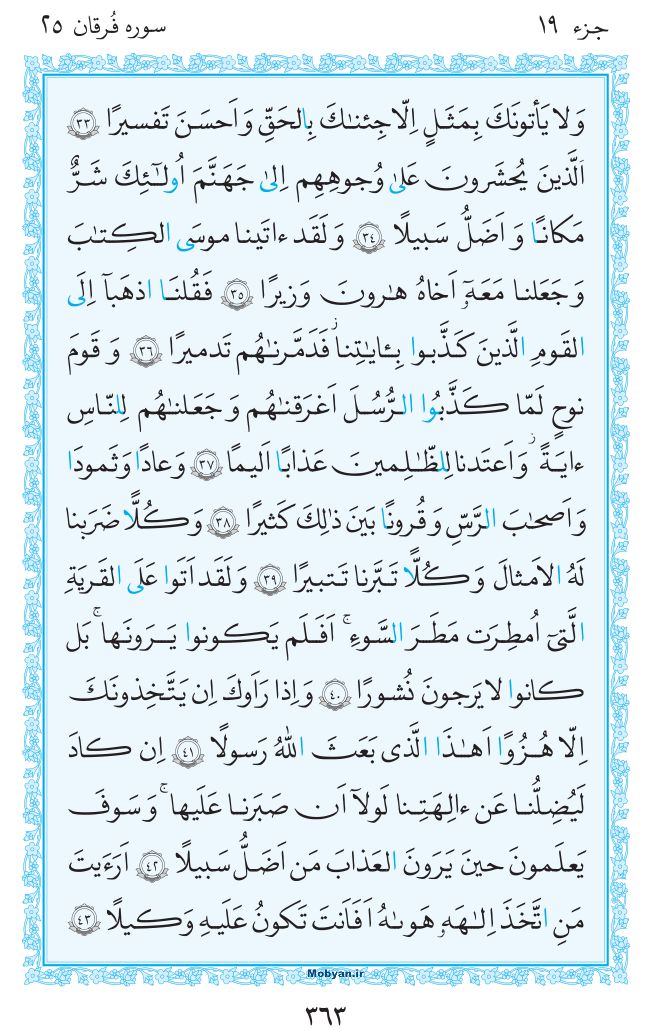 جزء ١٩
سوره فُرقان ٢٥
وَلا يَأتونَكَ بِمَثَلٍ اِلّا جِئناكَ بِالحَقِّ وَ اَحسَنَ تَفسيرًا ﴿٣٣﴾
اَلَّذينَ يُحشَرونَ عَلىٰ وُجوهِهِم اِلىٰ جَهَنَّمَ اُولٰـئِكَ شَرٌّ
مَكانًا وَ اَضَلُّ سَبيلًا ﴿٣٤﴾ وَ لَقَد ءاتَينا موسَى الكِتٰبَ
وَ جَعَلنا مَعَهٓ اَخاهُ هٰرونَ وَزيرًا ﴿٣٥﴾ فَقُلنَا اذهَبآ اِلَى
القَومِ الَّذينَ كَذَّبوا بِـٔايٰتِنا فَدَمَّرنٰهُم تَدميرًا ﴿٣٦﴾ وَ قَومَ
نوحٍ لَمّا كَذَّبُوا الرُّسُلَ اَغرَقنٰهُم وَ جَعَلنٰهُم لِلنّاسِ
ءايَةً وَ اَعتَدنا لِلظّٰلِمينَ عَذابًا اَليمًا ﴿٣٧﴾ وَ عادًا وَ ثَمودَا
وَ اَصحٰبَ الرَّسِّ وَ قُرونًا بَينَ ذٰلِكَ كَثيرًا ﴿٣٨﴾ وَ كُلًّا ضَرَبنا
لَهُ الاَمثالَ وَ كُلًّا تَبَّرنا تَتبيرًا ﴿٣٩﴾ وَ لَقَد اَتَوا عَلَى القَريَةِ
الَّتىٓ اُمطِرَت مَطَرَ السَّوءِ ۚ اَفَلَم يَكونوا يَرَونَها ۚ بَل
كانوا لا يَرجونَ نُشورًا ﴿٤٠﴾ وَ اِذا رَاَوكَ اِن يَتَّخِذونَكَ
اِلّا هُزُوًا اَهٰذَا الَّذى بَعَثَ اللّٰهُ رَسولًا ﴿٤١﴾ اِن كادَ
لَيُضِلُّنا عَن ءالِهَتِنا لَولآ اَن صَبَرنا عَلَيها ۚ وَ سَوفَ
يَعلَمونَ حينَ يَرَونَ العَذابَ مَن اَضَلُّ سَبيلًا ﴿٤٢﴾ اَرَءَيتَ
مَنِ اتَّخَذَ اِلٰـهَهٗ هَوىٰهُ اَفَاَنتَ تَكونُ عَلَيهِ وَكيلًا ﴿٤٣﴾
Mobyan.ir
٣٦٣